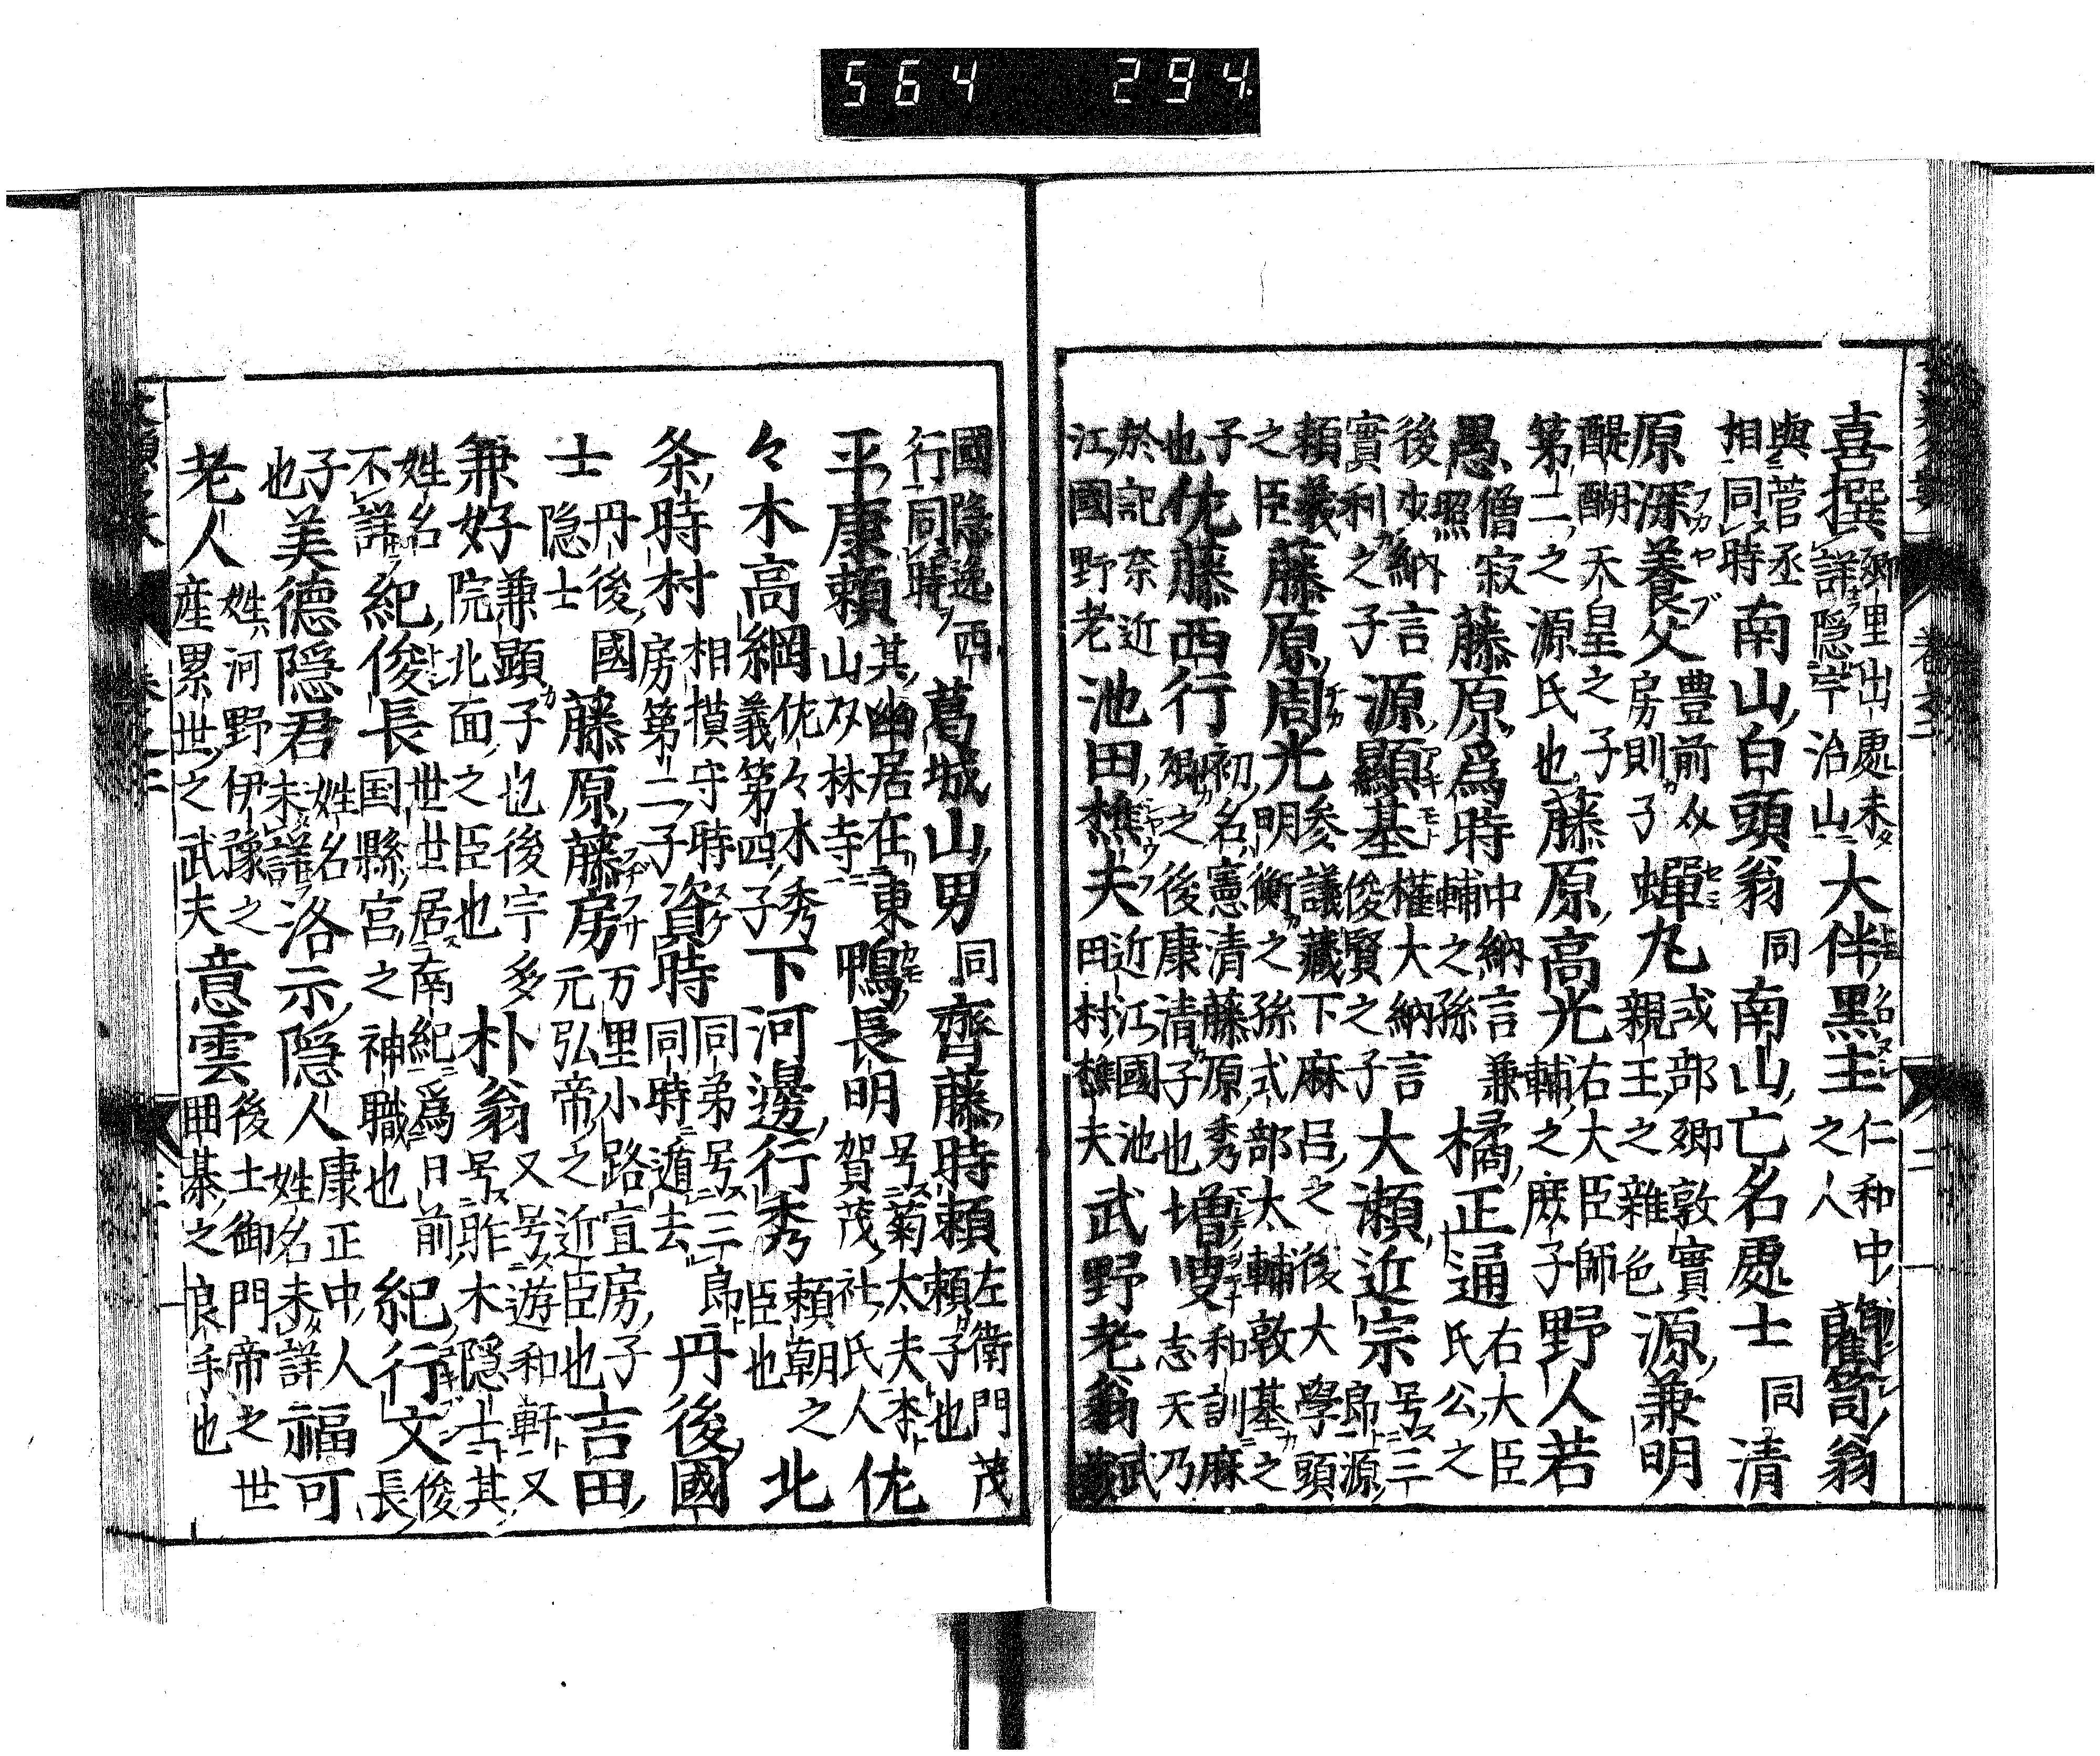 564 294
喜撰 郷里出處未詳隠宇治山 大伴黒主 仁和中之人 蘭笥翁
與菅丞相同時 南山白頭翁 同 南山亡名處士 同 清
原深養父 豊前介房則子 蝉丸 或部卿敦實親王之雜色 源兼明
醍醐天皇之子第二之源氏也 藤原高光 右大臣師輔之庶子 野人若
愚 僧寂照 藤原為時 中納言兼輔之孫 橘正通 右大臣氏公之
後 少納言實利之子 源顯基 權大納言俊賢之子 大瀬近宗 号三郎源
頼義之臣 藤原周光 参議藏下麻呂之後大學頭明衡之孫式部太輔敦基之
子也 佐藤西行 初名憲清藤原秀郷之後康清子也 増叟 和訓麻志天乃
於記奈近江國野老 池田樵夫 近江國池田村樵夫 武野老翁 武
國隠逸西行同時 葛城山男 同 齊藤時頼 左衛門茂頼子也
平康頼 其幽居在東山双林寺 鴨長明 号菊太夫本賀茂社氏人 佐
々木高綱 佐々木秀義第四子 下河邊行秀 頼朝之臣也 北
条時村 相摸守時房第二子 資時 同弟号三郎同時遁去 丹後國
士 丹後國隠士 藤原藤房 万里小路宣房子元弘帝之近臣也 吉田
兼好 兼顕子也後宇多院北面之臣也 朴翁 又号游和軒又号昨木隠士其
姓名不詳 紀俊長 世世居南紀為日前国縣宮之神職也 紀行文 俊長
子也 美徳隠君 姓名未詳 洛示隠人 康正中人姓名未詳 福可
老人 姓河野伊豫之産累世之武夫 意雲 後土御門帝之世囲碁之良手也